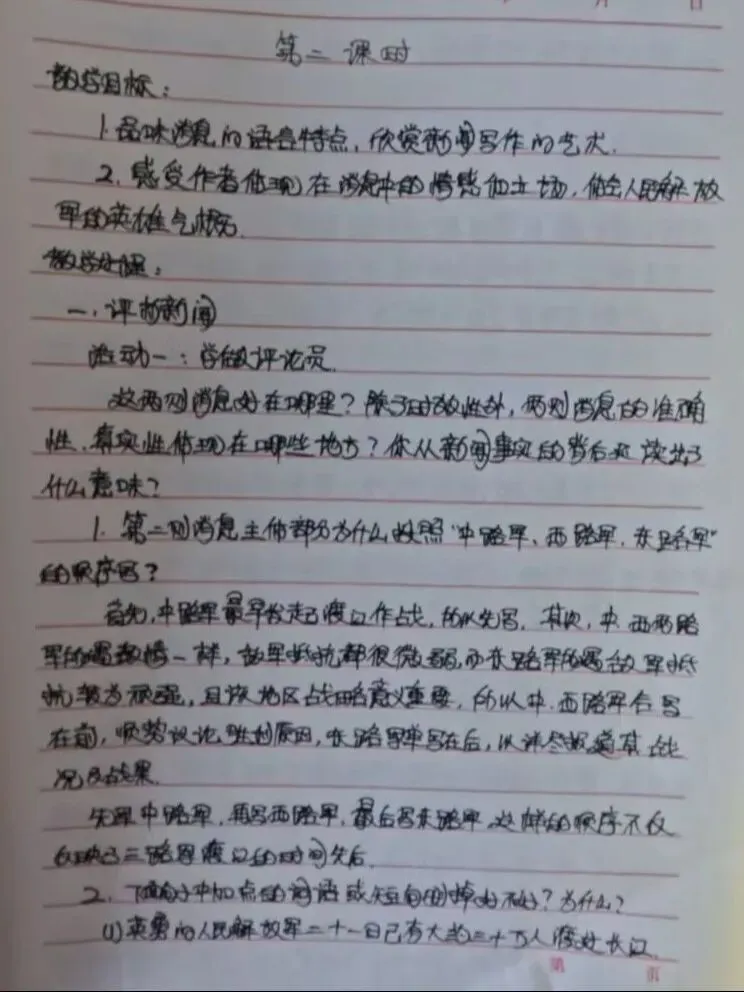 月 日
第二课时
教学目标：
1.品味消息的语言特点，欣赏新闻写作的艺术.
2.感受作者体现在消息中的情感和立场，体会人民解放
军的英雄气概.
教学过程：
一.评析新闻
活动一：学做评论员.
这两则消息好在哪里？除了时效性外，两则消息的准确
性、真实性体现在哪些地方？你从新闻事实的背后又读出了
什么意味？
1.第二则消息主体部分为什么按照“中路军、西路军、东路军”
的顺序写？
首先，中路军最早发起渡江作战，所以先写.其次，中.西两路
军所遇敌情一样，敌军抵抗都很微弱，而东路军所遇敌军抵
抗较为顽强，且该地区战略意义重要，所以中.西路军合写
在前，顺势议论胜利原因，东路军单写在后，以详尽报道其战
况及战果.
先写中路军，再写西路军，最后写东路军.这样的顺序不仅
仅映了三路军渡江的时间先后.
2.下面句中加点的词语或短句删掉好不好？为什么？
(1)英勇的人民解放军二十一日已有大约三十万人渡过长江.
第 页